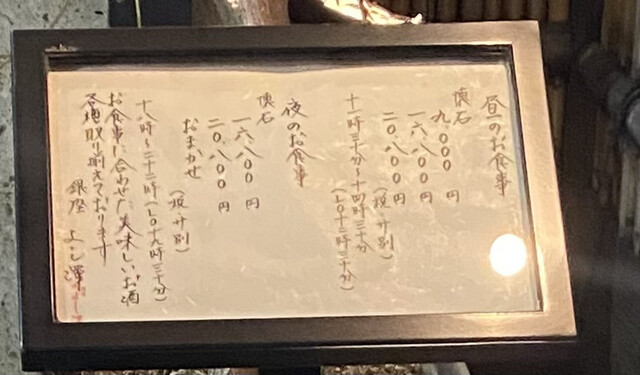 昼のお食事
懐石
九.000円
一六.八00円
二0.八00円
(税・サ別)
十一時三十分〜十四時三十分
(LO十三時三十分)
夜のお食事
懐石
一六.八00円
二0.八00円
おまかせ
(税・サ別)
十八時〜二十二時(LO十九時三十分)
お食事に合わせた美味しいお酒
各種取り揃えております
銀座 よし澤